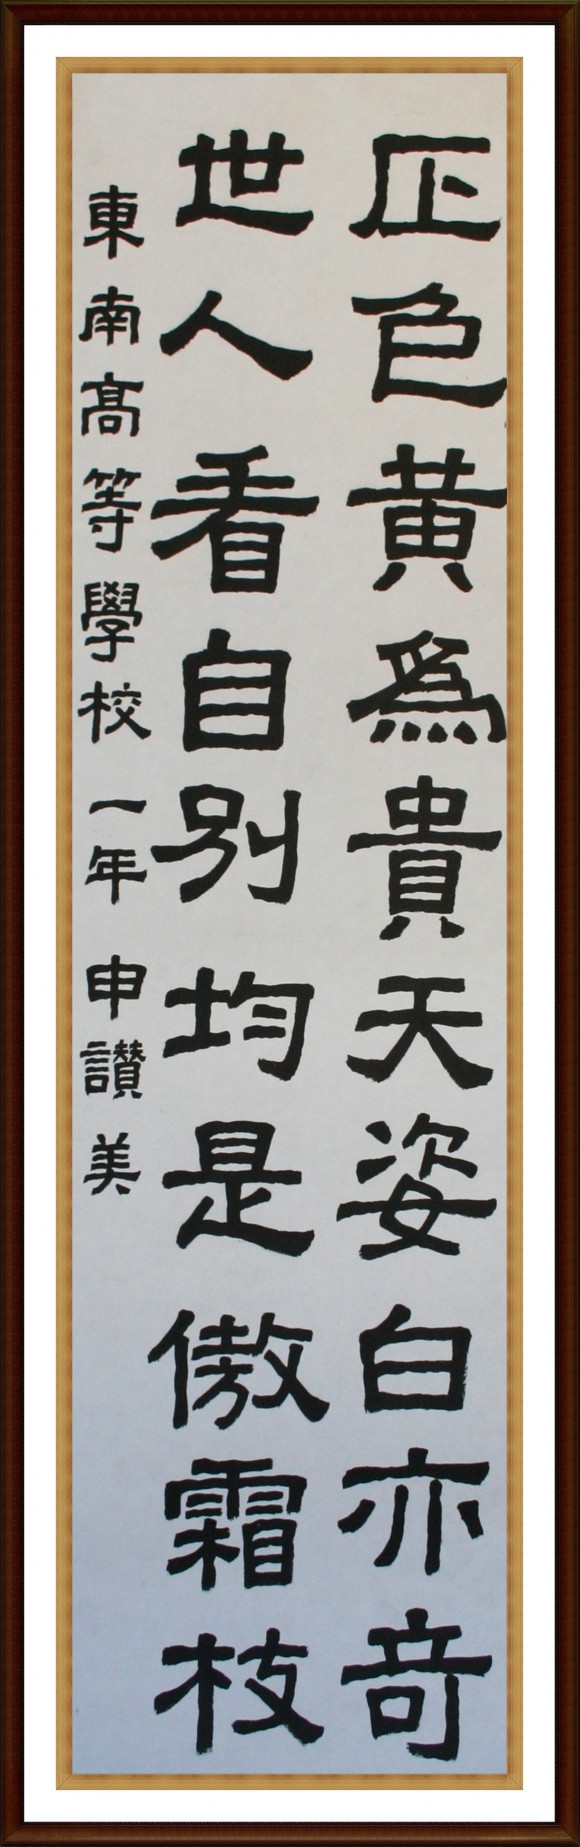 正色黃爲貴天姿白亦奇
世人看自別均是傲霜枝
東南高等學校 一年 申讚美